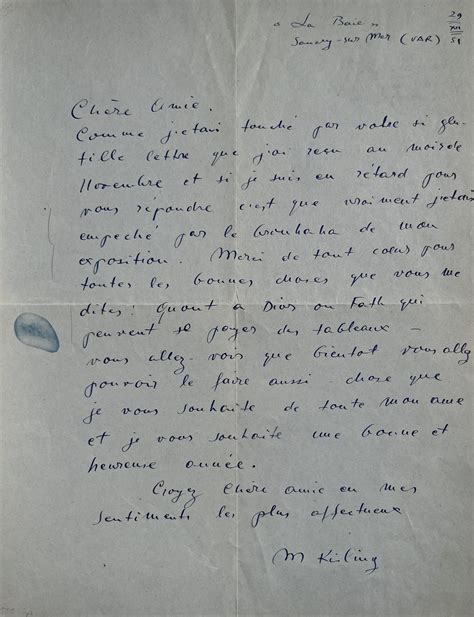 « La Baie »
Sanary-sur Mer (VAR)
29
XII
51
Chère Amie.
Comme j'etais touché par votre si gen-
tille lettre que j'ai reçu au mois de
Novembre et si je suis en retard pour
vous répondre c'est que vraiment j'etais
empeché par le brouhaha de mon
exposition. Merci de tout cœur pour
toutes les bonnes choses que vous me
dites! Quant a Dior ou Fath qui
peuvent se payer des tableaux –
vous allez voir que bientot vous allez
pouvoir le faire aussi - chose que
je vous souhaite de toute mon ame
et je vous souhaite une bonne et
heureuse année.
Croyez Chère amie en mes
sentiments les plus affectueux
M Kisling